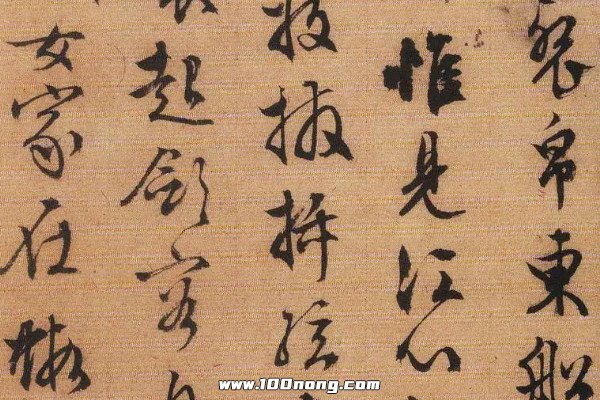 裂帛東船
惟見江心
放撥插絃
起斂容自
女家在蝦
www.100nong.com